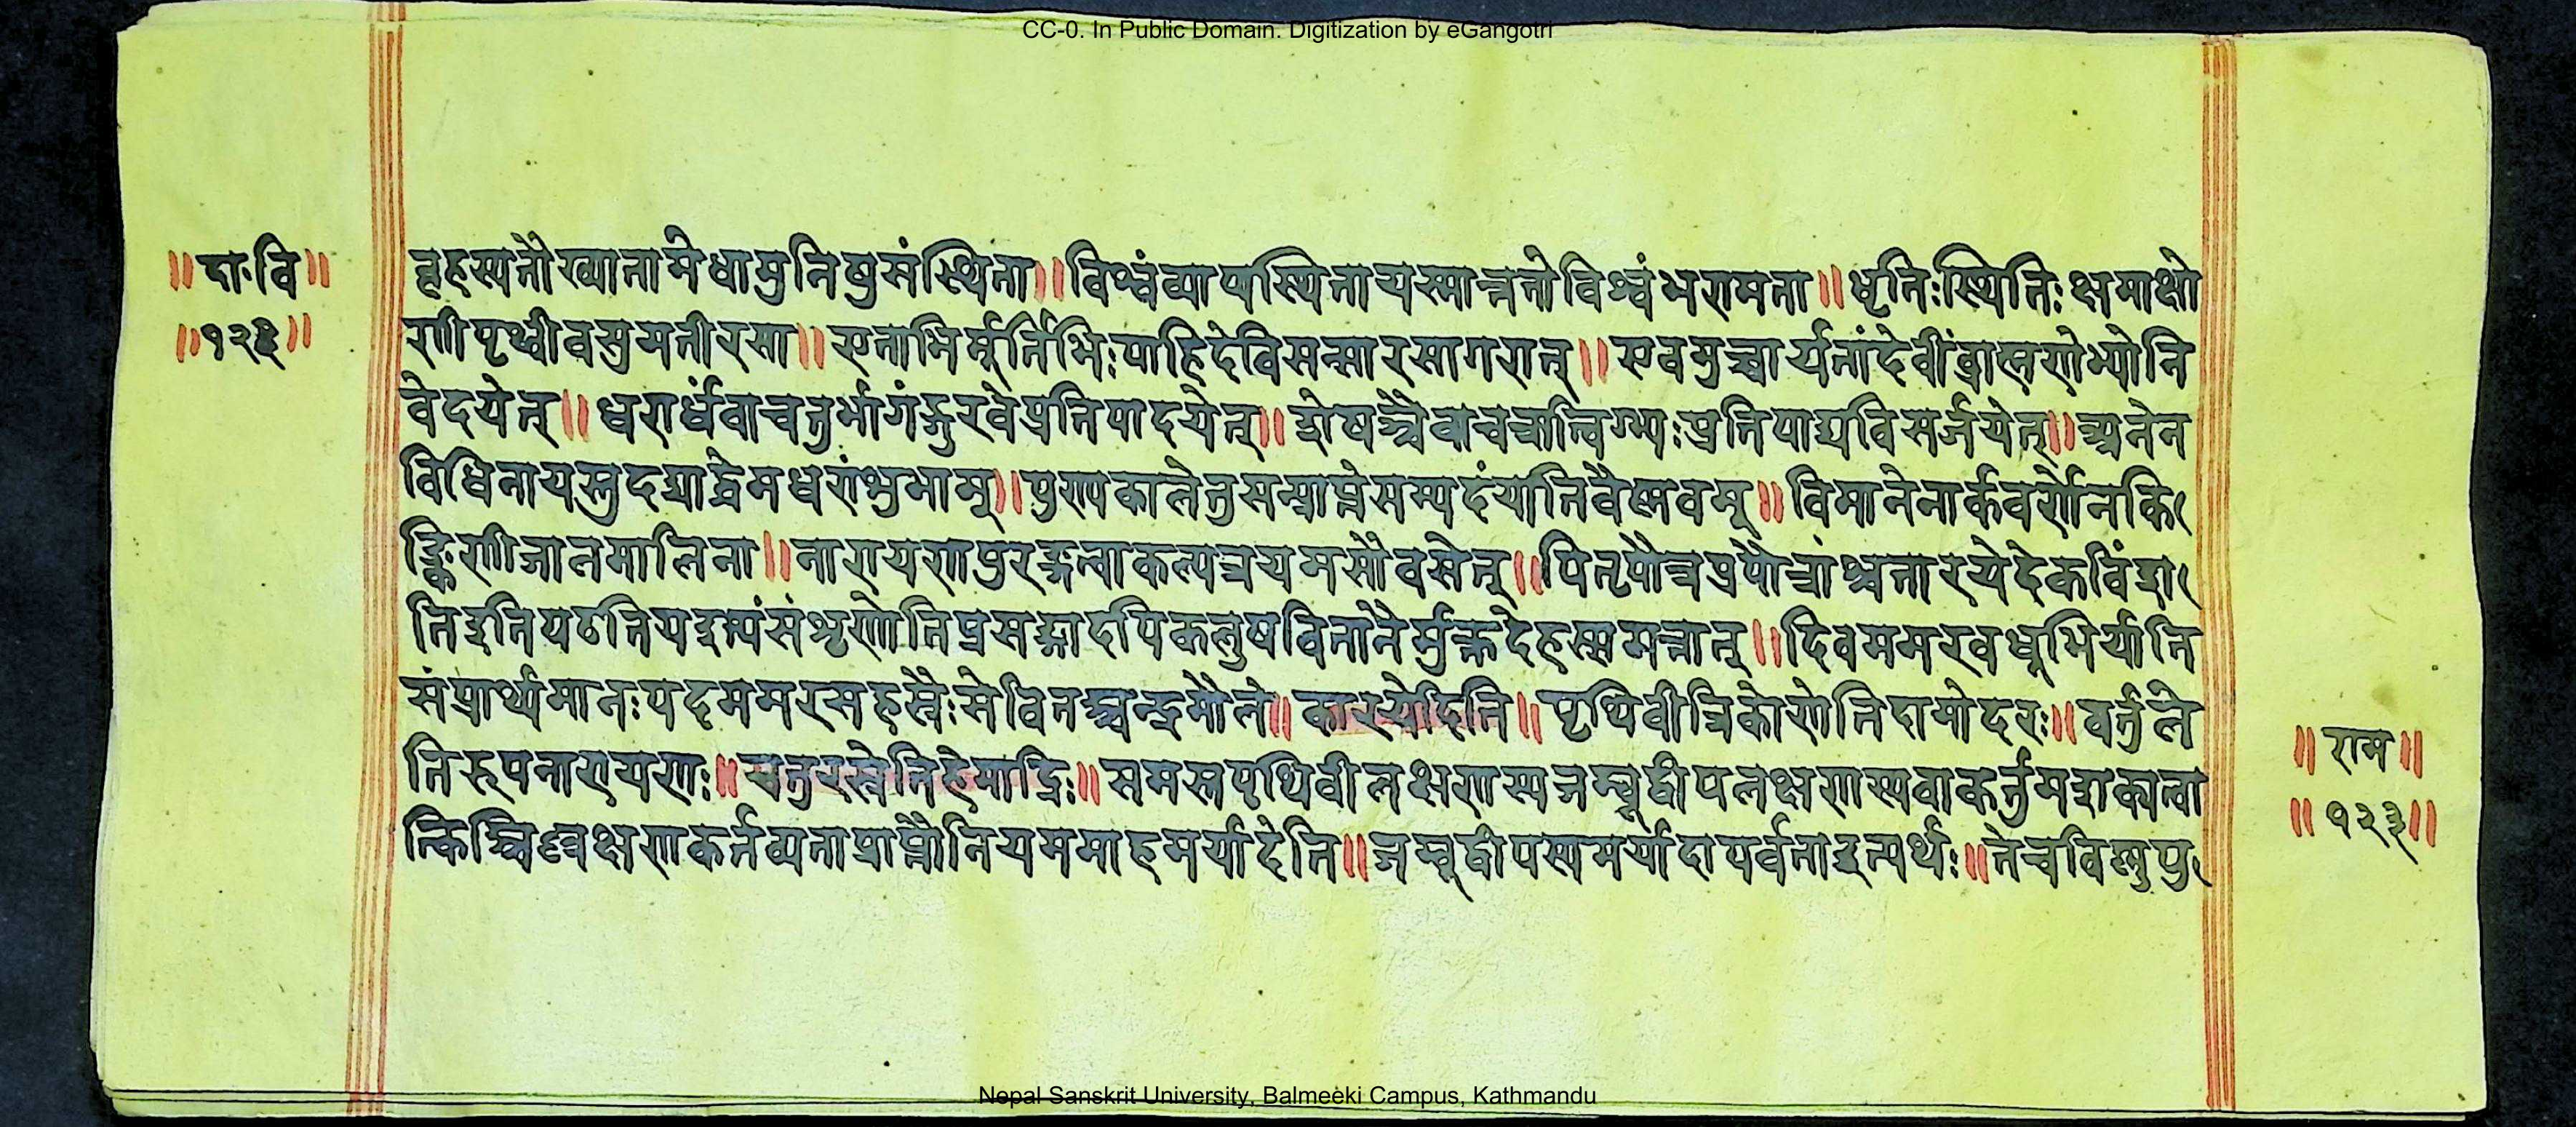 CC-0. In Public Domain. Digitization by eGangotri
॥ दा॰वि॥
॥१२३॥
बृहस्पतौख्यातामेधामुनिषुसंस्थिता॥विश्वंव्याप्यस्थितायस्मात्ततोविश्वंभरामता॥धृतिःस्थितिःक्षमाक्षो
णीपृथ्वीवसुमतीरसा॥एताभिर्मूर्त्तिभिःपाहिदेविसन्सारसागरात्॥एवमुच्चार्यतांदेवींब्राह्मणेभ्योनि
वेदयेत्॥धरार्धंवाचतुर्भागंङ्गुरवेप्रतिपादयेत्॥शेषञ्चैवाचचात्विग्भ्यःप्रतिपाद्यविसर्जयेत्॥अनेन
विधिनायस्तुदद्याद्धेमधरांशुभाम्॥पुण्यकालेतुसन्प्राप्तेसम्पदंयातिवैष्णवम्॥विमानेनार्कवर्णेनकि
ङ्किणीजालमालिना॥नारायणपुरङ्गत्वाकल्पत्रयमसौवसेत्॥पितृपौत्रप्रपौत्रांश्चतारयेदेकविंश
तिइतिपठतियइत्थंसंशृणोतिप्रसङ्गादपिकलुषवितानैर्मुक्तदेहस्समन्तात्॥दिवममरवधूभिर्याति
संप्रार्थ्यमानःपदममरसहस्रैःसेवितञ्चन्द्रमौले॥कारयेदिति॥पृथिवीत्रिकोणेतिदामोदरः॥वर्त्तुले
तिरूपनारायणः॥चतुरस्रेतिहेमाद्रिः॥समस्तपृथिवीलक्षणस्यजम्बूद्वीपलक्षणस्यवाकर्त्तुमशक्यत्वा
त्किञ्चिल्लक्षणकर्तव्यताप्राप्तौनियममाहमर्यादेति॥जम्बूद्वीपस्यमर्यादापर्वताइत्यर्थः॥तेचविष्णुपु
॥ राम॥
॥ १२३॥
Nepal Sanskrit University, Balmeeki Campus, Kathmandu